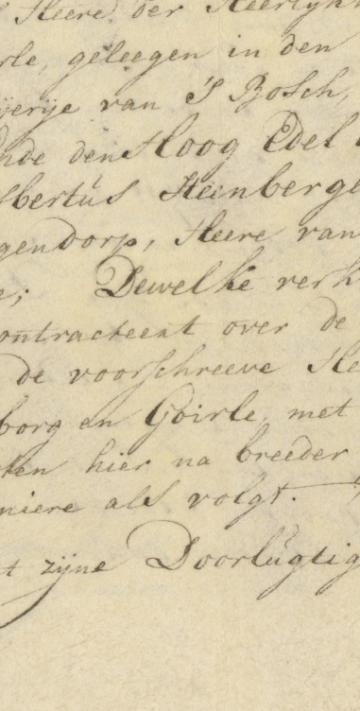 Heere der Heerlykh
rle, geleegen in den
ijerije van 'S Bosch,
ende den Hoog Edel
sbertus Steenberge
gendorp, Heere van
e; Dewelke verk
ontracteert over de
de voorschreeve He
borg en Goirle, met
ten hier na breeder
niere als volgt.
t zijne Doorlugtig